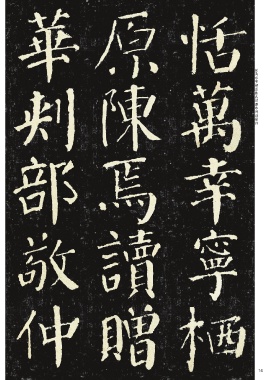 恬萬幸寧栖
原陳焉讀贈
華刾部敬仲